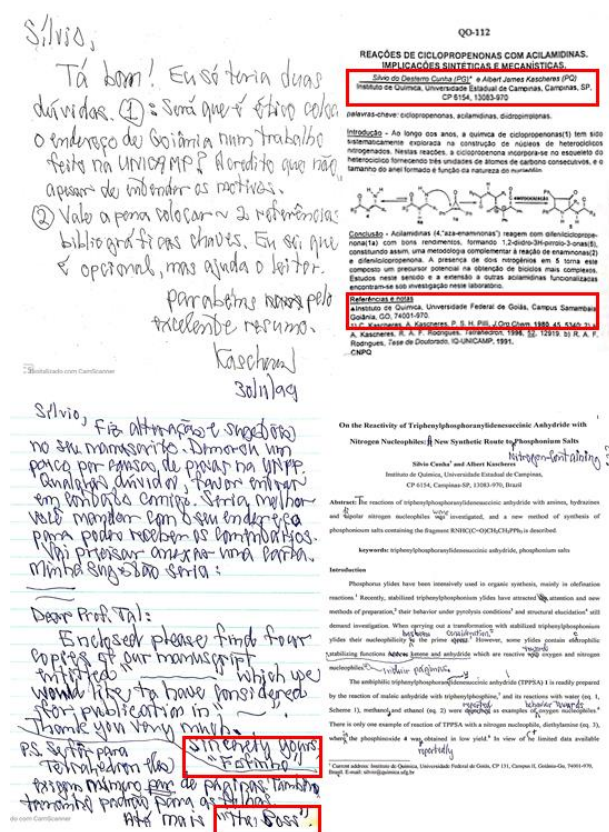 Sílvio,
Tá bom! Eu só teria duas
dúvidas. ①: Será que é ético colocar
o endereço de Goiânia num trabalho
feito na UNICAMP? Acredito que não,
apesar de entender os motivos.
② Vale a pena colocar ~ 2 referências
bibliográficas chaves. Eu sei que
é opcional, mas ajuda o leitor.
parabéns pelo
excelente resumo.
Kascheres
30/11/99
Digitalizado com CamScanner
QO-112
REAÇÕES DE CICLOPROPENONAS COM ACILAMIDINAS.
IMPLICAÇÕES SINTÉTICAS E MECANÍSTICAS.
Silvio do Desterro Cunha (PG)* e Albert James Kascheres (PQ)
Instituto de Química, Universidade Estadual de Campinas, Campinas, SP.
CP 6154, 13083-970
palavras-chave: ciclopropenonas, acilamidinas, diidropirrolonas.
Introdução - Ao longo dos anos, a química de ciclopropenonas(1) tem sido
sistematicamente explorada na construção de núcleos de heterocíclicos
nitrogenados. Nestas reações, a ciclopropenona incorpora-se no esqueleto do
heterocíclico fornecendo três unidades de átomos de carbono consecutivos, e o
tamanho do anel formado é função da natureza do
Conclusão - Acilamidinas (4,"aza-enaminonas") reagem com difenilciclopropenona(1a)
com bons rendimentos, formando 1,2-diidro-3H-pirrolo-3-onas(5),
constituindo assim, uma metodologia complementar à reação de enaminonas(2)
e difenilciclopropenona. A presença de dois nitrogênios em 5 torna este
composto um precursor potencial na obtenção de biciclos mais complexos.
Estudos neste sentido e a extensão à outras acilamidinas funcionalizadas
encontram-se sob investigação neste laboratório.
Referências e notas
Instituto de Química, Universidade Federal de Goiás, Campus Samambaia
Goiânia, GO, 74001-970.
1) C. Kascheres, A. Kascheres, P. S. H. Pilli, J.Org.Chem. 1980, 45, 5340; 2) a)
A. Kascheres, R. A. F. Rodrigues, Tetrahedron, 1996, 52, 12919. b) R. A. F.
Rodrigues, Tese de Doutorado, IQ-UNICAMP, 1991.
CNPQ
Sílvio,
Fiz alterações e sugestões
no seu manuscrito. Demorou um
pouco por causas de provas na UNPP.
Qualquer dúvida, favor entrar
em contato comigo. Seria melhor
você mandar com o seu endereço
para poder receber os comentários.
Vai precisar anexar uma carta.
Minha sugestão seria:
Dear Prof. Tal:
Enclosed please find four
copies of our manuscript
entitled which we
would like to have considered
for publication in
Thank you very much.
Sincerely yours,
"Fofinho"
P.S. Se for para
Tetrahedron eles
exigem número par de páginas. Também
tamanho padrão para as
Até mais "The Boss"
do com CamScanner
On the Reactivity of Triphenylphosphoranylidenesuccinic Anhydride with
Nitrogen Nucleophiles: A New Synthetic Route to Phosphonium Salts
Nitrogen-Containing
Silvio Cunha¹ and Albert Kascheres
Instituto de Química, Universidade Estadual de Campinas,
CP 6154, Campinas-SP, 13083-970, Brazil
Abstract: The reactions of triphenylphosphoranylidenesuccinic anhydride with amines, hydrazines
and dipolar nitrogen nucleophiles were investigated, and a new method of synthesis of
phosphonium salts containing the fragment RNHC(C=O)CH₂CH₂PPh₃ is described.
keywords: triphenylphosphoranylidenesuccinic anhydride, phosphonium salts
Introduction
Phosphorus ylides have been intensively used in organic synthesis, mainly in olefination
reactions.¹ Recently, stabilized triphenylphosphorus ylides have attracted attention and new
methods of preparation,² their behavior under pyrolysis conditions³ and structural elucidation⁴ still
demand investigation. When carrying out a transformation with stabilized triphenylphosphorus
ylides their nucleophilicity is the prime However, some ylides contain electrophilic
stabilizing functions ketone and anhydride which are reactive oxygen and nitrogen
nucleophiles.
The ambiphilic triphenylphosphoranylidenesuccinic anhydride (TPPSA) 1 is readily prepared
by the reaction of maleic anhydride with triphenylphosphine,⁷ and its reactions with water (eq. 1,
Scheme 1), methanol and ethanol (eq. 2) were reported as examples of oxygen nucleophiles.
There is only one example of reaction of TPPSA with a nitrogen nucleophile, diethylamine (eq. 3),
where the phosphinoxide 4 was obtained in low yield. In view of the limited data available
reportedly
¹ Current address: Instituto de Química, Universidade Federal de Goiás, CP 131, Campus II, Goiânia-Go, 74001-970,
Brazil. E-mail: silvio@quimica.ufg.br